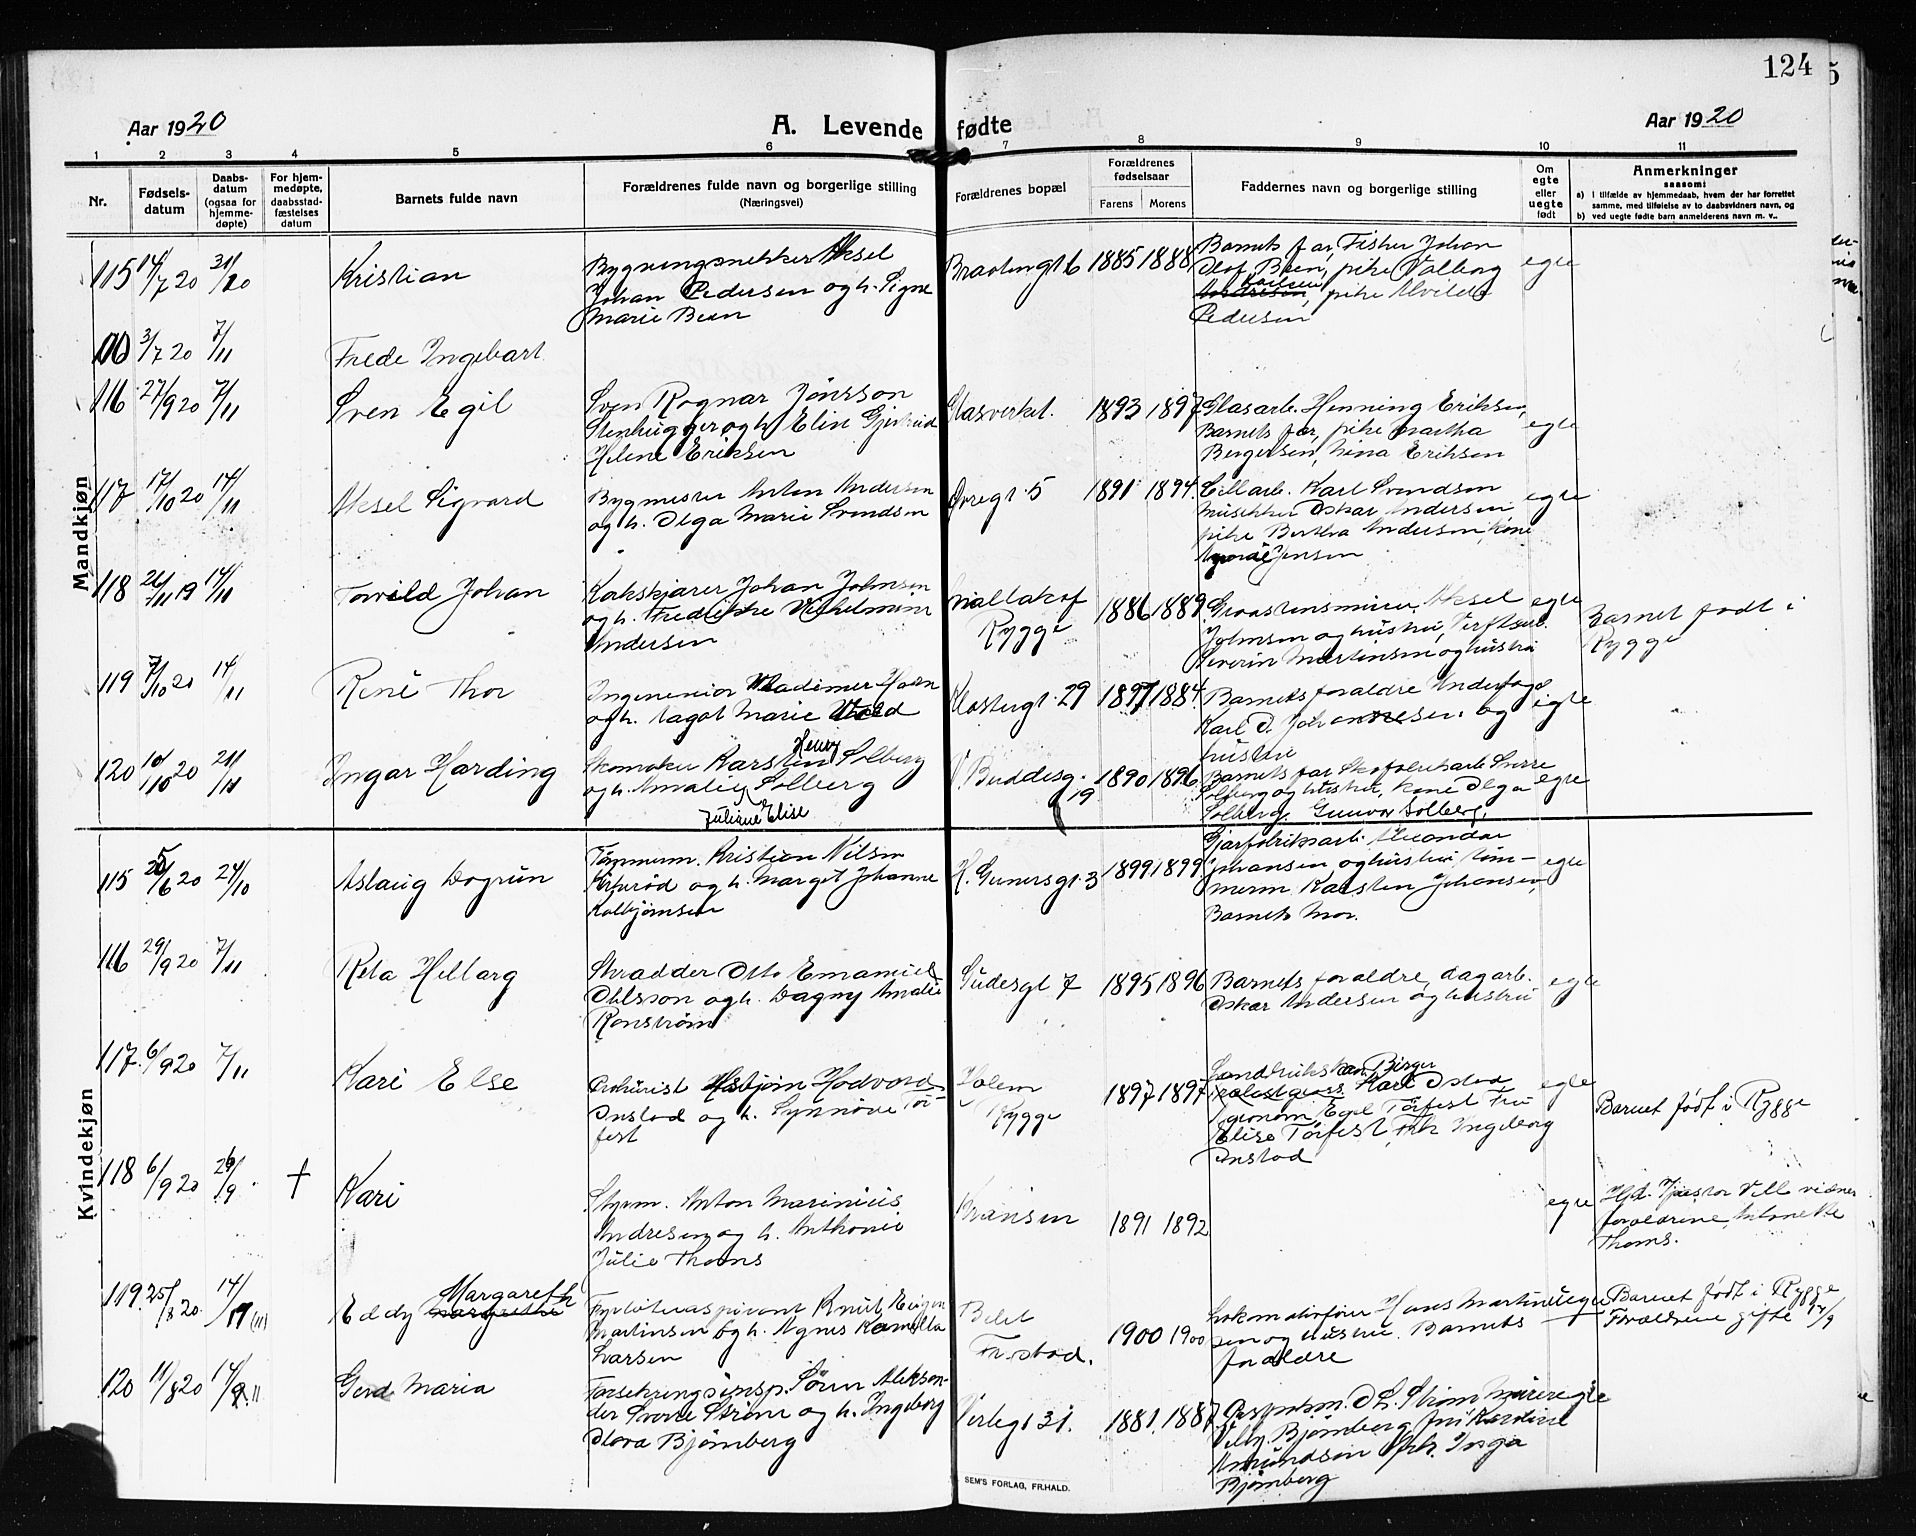 124
Aar 1920
A. Levende fødte
Aar 1920
1 2 3 4 5 6 7 8 9 10 11
Nr.
Fødsels-
datum
Daabs-
datum
(ogsaa for
hjemme-
døpte)
For hjem-
medøpte,
daabsstad-
fæstelses
datum
Barnets fulde navn
Forældrenes fulde navn og borgerlige stilling
(Næringsvei)
Forældrenes bopæl
Forældrenes
fødselsaar
Farens Morens
Faddernes navn og borgerlige stilling
Om
egte
eller
uegte
født
Anmerkninger
saasom:
a) i tilfælde av hjemmedaab, hvem der har forrettet
samme, med tilføielse av to daabsvidners navn, og
b) ved uegte fødte barn anmelderens navn m. v..
Mandkjøn
115 14/7 20 31/10 Kristian
Bygningssnekker Aksel
Johan Pedersen og h. Signe
Marie Been
1885 1888
Barnets far, Fisker Johan
Olof Been, pike Valborg
Andresen, pike Alvilde
Pedersen
egte
3/7 20 7/11 Frede Ingebart
116 27/9 20 7/11 Sven Egil
Sven Ragnar Jönsson
Stenhugger og h. Elin
Helene Eriksen
Glasverket. 1893 1897
Glasarb. Henning Eriksen,
Barnets far, pike Martha
Bergersen, Lina Eriksen
egte
117 17/10 20 14/11 Aksel Sigvard
Bygmester Anton Andersen
og h. Olga Marie Svendsen
Øvregt. 5 1891 1894
Cellarb. Karl Svendsen
Oskar Andersen
pike Bertha Andersen, kone
Jensen
egte
118 26/11 19 14/11 Torvild Johan
Korkskjærer Johan Johnsen
og h. Fredrikke Vilhelmine
Andersen
Rygge
1886 1889
Graastensmurer Aksel
Johnsen og hustru, Verftsarb.
Severin Martinsen og hustru
egte
Barnet født i
Rygge
119 7/10 20 14/11 René Thor
Ingeneniør Wladimer
og h. Aagot Marie
Klostergt. 29 1897 1884
Barnets forældre Underfoged
Karl D. Johannesen og
hustru
egte
120 10/10 20 21/11 Ingar Harding
Henry
Skomaker Karsten Solberg
og h. Amalie Solberg
Juliane Elise
V. Buddesg.
19
1890 1896
Barnets far Skofabrikarb. Sverre
Solberg og hustru, kone Olga
Solberg, Gunvor Solberg,
egte
Kvindekjøn
115 25/6 20 24/10 Aslaug Dagrun
Tømmerm. Kristian Nilsen
og h. Margit Johanne
Kolbjørnsen
H. Gunersgt. 3 1899 1899
Garfabrikarb.
Johansen og hustru, tøm-
merm Karsten Johansen,
Barnets Mor.
egte
116 29/9 20 7/11 Reta
Skrædder Otto Emanuel
Ohlsson og h. Dagny Amalie
Ronstrøm
Gudesgt 7 1895 1896
Barnets forældre, dagarb.
Oskar Andersen og hustru
egte
117 6/9 20 7/11 Kari Else
Prokurist Asbjørn Hodvard
Onstad og h. Synnøve Tor-
fest
Rygge
1897 1897
Birger
Karl Onstad
Agronom, Egil Torfest Fru
Elise Torfest, Frk Ingeborg
Onstad
egte
Barnet født i Rygge
118 6/9 20 26/9 † Kari
Styrm. Anton Marinius
Andresen og h. Anthonie
Julie Thoms
Kransen 1891 1892
egte
Hjd. Pastor vidner
forældrene,
Thoms.
119 25/8 20 14/11 Eddy Margareth
Fyrbøteraspirant Knut
Martinsen og h. Agnes Kamilla
Larsen
1900 1900
Lokomotivfører Hans Martin-
sen og hustru. Barnets
forældre
uegte
Barnet født i Rygge
Forældrene gifte
120 11/8 20 14/11 Gerd Maria
Forsekringsinsp. Søren Aleksan-
der Sverre Strøm og h. Ingeborg
Nora Bjørnberg
Verlegt 31. 1881 1887
Strøm, Murer
Bjørnberg, fru Karoline
Amundsen frk. Inga
Bjørnberg
egte
SEM'S FORLAG, FR.HALD.